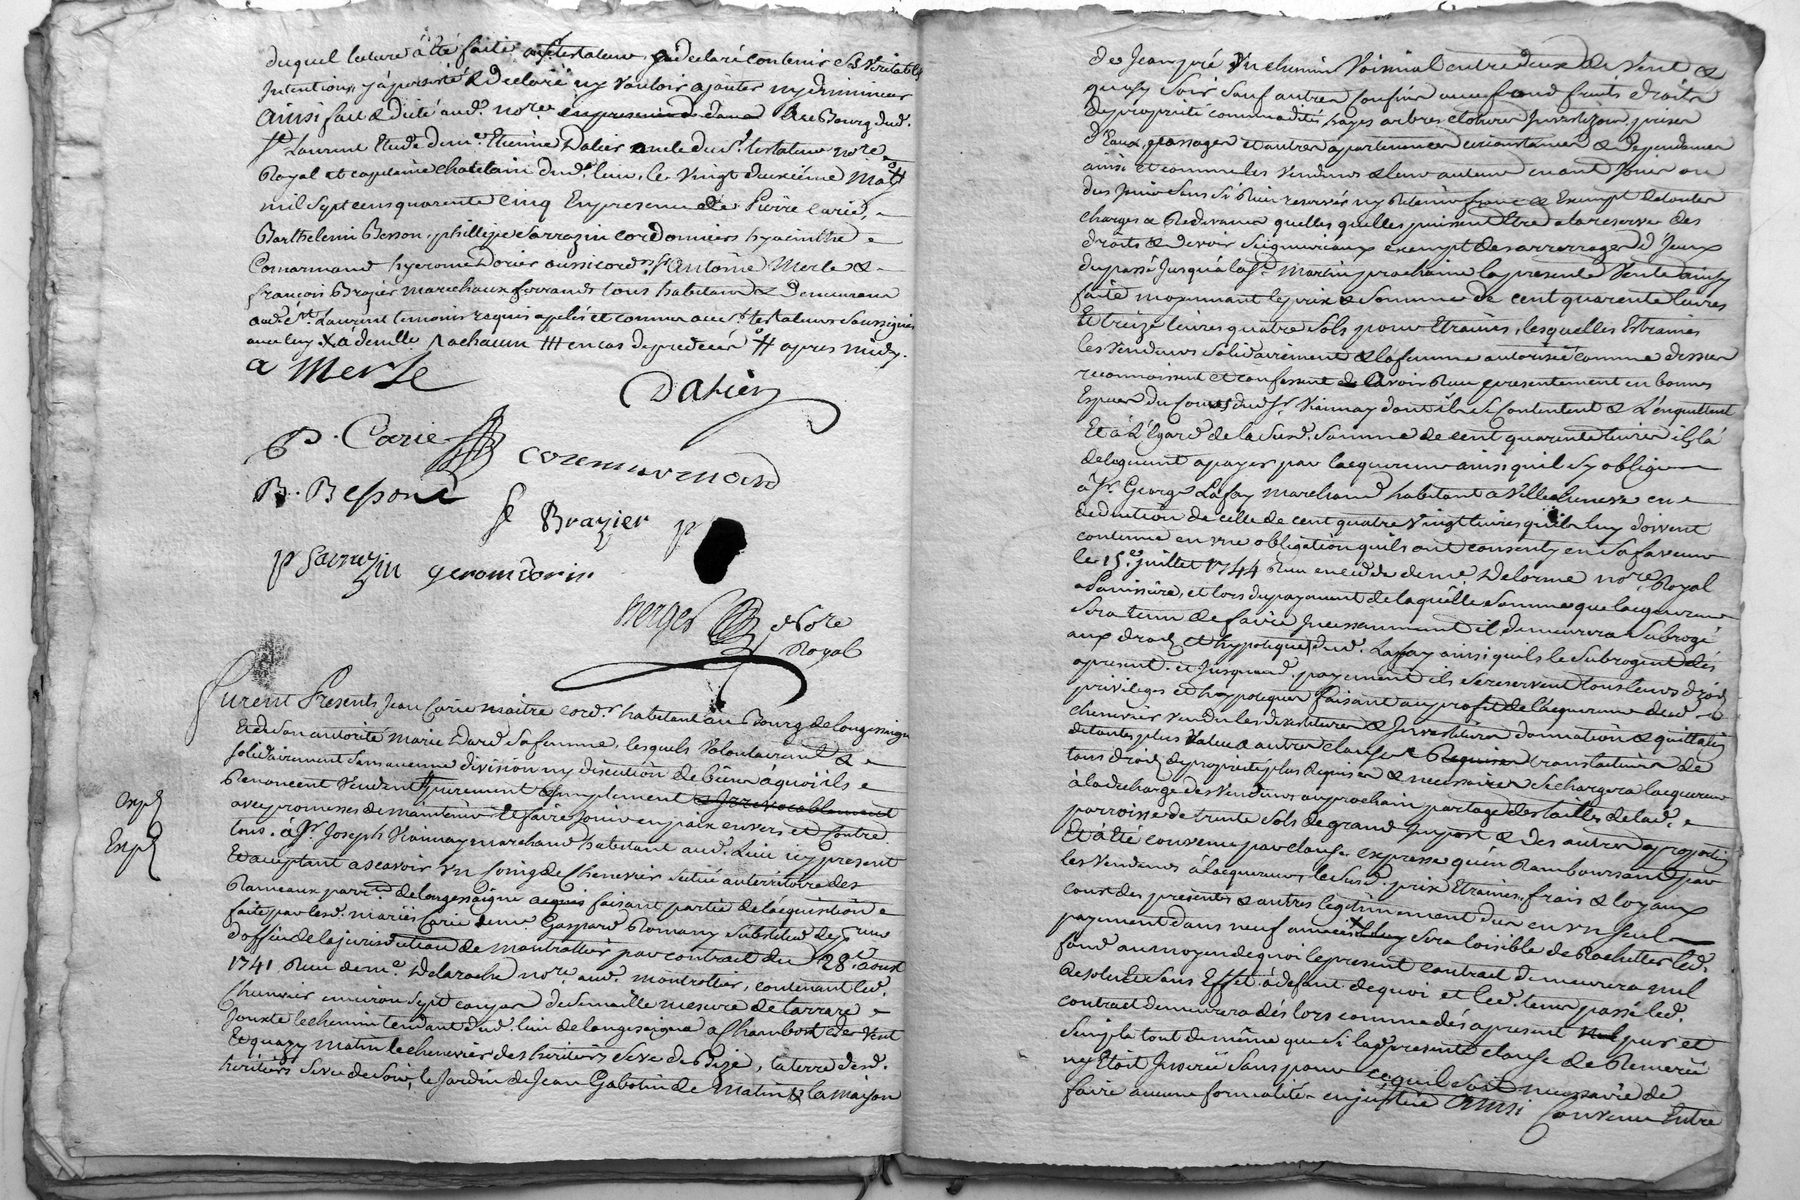 duquel lecture a été faite au testateur, qu'a declaré contenir ses veritables
Intentions, y a persisté & declaré ny vouloir ajouter ny diminuer
ainsi fait & dicté aud. nore. en presence dans le Bourg dud.
St. Laurent Etude de me. Etienne Dalier oncle dud. testateur nore.
Royal et capitaine chatelain dud. lieu, le vingt deuxième
mil sept cens quarente cinq En presence de Pierre Carie,
Barthelemi Besson, phillippe Sarrazin cordonniers hyacinthe
Comarmand hyerome Dorier aussi cordr. Sr. Antoine Merle &
françois Brazier marechaux ferrands tous habitans & demeurans
aud. St. Laurent temoins requis apelés et connus avec le testateur soussignés
avec luy X à demille a chacun ### en cas de predecès # apres midy.
a Merle
Dalier
P. Carie
coremarmond
B. Besson
f Brazier
p
p Sarrazin
gerom dorier
Berger
Nore
Royal
Furent Presents Jean Carie maitre cordr. habitant au Bourg de longessaigne
Et de son autorité Marie Dard sa femme, lesquels volontairement &
solidairement sans aucune division ny discution de biens à quoi ils
Renoncent vendent purement & simplement & Irrevocablement
avec promesses de maintenir & faire jouir en paix envers et contre
tous. à Sr. Joseph Viannay marchand habitant aud. Lieu icy present
Et acceptant ascavoir un coing de Chenevier situé au territoire des
Rameaux parrse. de longessaigne acquis faisant partie de l'acquisition
faite par lesd. mariés Carie de me. Gaspard Romany substitud de Sr.
d'office de la jurisdiction de montrottier par contrat du 28e. aoust
1741 Reçu de me. Delaroche nore. aud. montrottier, contenant led.
Chenevier environ sept coupes de semaille mesure de tarrare
Jouxte le chemin tendant dud. lieu de longessaigne a Chambost de vent
Et quazy matin le chenevier des heritiers Seve de Bize, la terre desd.
heritiers Seve de Soir, le jardin de Jean Gabolin de matin & la maison
Expé
Expé
de Jean joré Un chemin Voisinal entre deux de Vent &
quasy Soir sauf autres confins avec fond fruits droits
de propriété commodités hayes arbres clotures Invetizon, prises
d'Eaux, passages et autres apartenances circonstances & dependances
ainsi et comme les vendeurs & leurs auteurs en ont jouir ou
deu jouir sans Si Rien reservés ny Retenir franc & Exempt de toutes
charges & Redevances quelles quelles puissent être a la reserve des
droits & devoir seigneuriaux exempt des arrerages d'Jceux
du passé Jusqu'à la St. martin prochaine la presente Vente ainsy
faite moyennant le prix & somme de cent quarente livres
Et treize livres quatre sols pour Etraines, lesquelles Estraines
les vendeurs solidairement & la femme autorisée comme dessus
reconnoissent et confessent de avoir Reçu presentement en bonnes
Especes du cours dud. Sr. Viannay dont ils se contentent & l'enquittent
Et à l'Egard de la susd. somme de cent quarente livres ils la
deleguent a payer par l'acquereur ainsi qu'il s'y oblige
à Sr. George Lafay marchand habitant a Villechenesve en
deduction de celle de cent quatre vingt livres qu'ils luy doivent
contenue en une obligation qu'ils ont consenty en sa faveur
le 15e. juillet 1744 Reçu envers de me. Delorme nore. Royal
a Panissiere, et lors du payement de laquelle somme que l'acquereur
sera tenu de faire Jncessamment il demeurera subrogé
aux droits et hypoteques dud. Lafay ainsi quils le subrogent dès
apresent. et Jusquaud. payement ils se reservent tous leurs droits
privileges et hypoteques faisant au profit de l'acquereur dud.
chenevier vendu les devestitures & Jnvestitures donnation & quittation
de toutes plus values & autres clauses Requises translatives de
tous droits de propriété plus requises & necessaires Se chargera l'acquereur
à la decharge des vendeurs au prochain partage des tailles de lad.
parroisse de trente sols de grand Jmpost & des autres a proportion
Et a été convenu par clause expresse qu'en Rambourssant par
les vendeurs à l'acquereur, le susd. prix Etraines, frais & loyaux
cours des presentes & autres legitimement dus en un seul
payement dans neuf années X sera loisible de Rachetter led.
fond au moyen de quoi le present contrat demeurera nul
Resolu & Sans Effet à defaut de quoi et led. temps passé led.
contrat demeurera dès lors comme dès apresent nul pur et
simple tout de même que si la presente clause de Remeré
ny étoit Jnserée sans pour ce quil soit necessaire de
faire aucune formalité en justice ainsi Convenu Entre